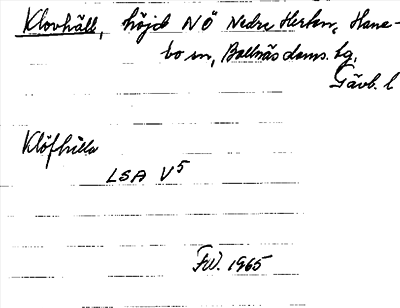 Klovhäll, höjd NÖ Nedre Herten, Hane-
bo sn, Bollnäs doms. hg,
Gävb. l
Klöfhälla
LSA V5
FW. 1965